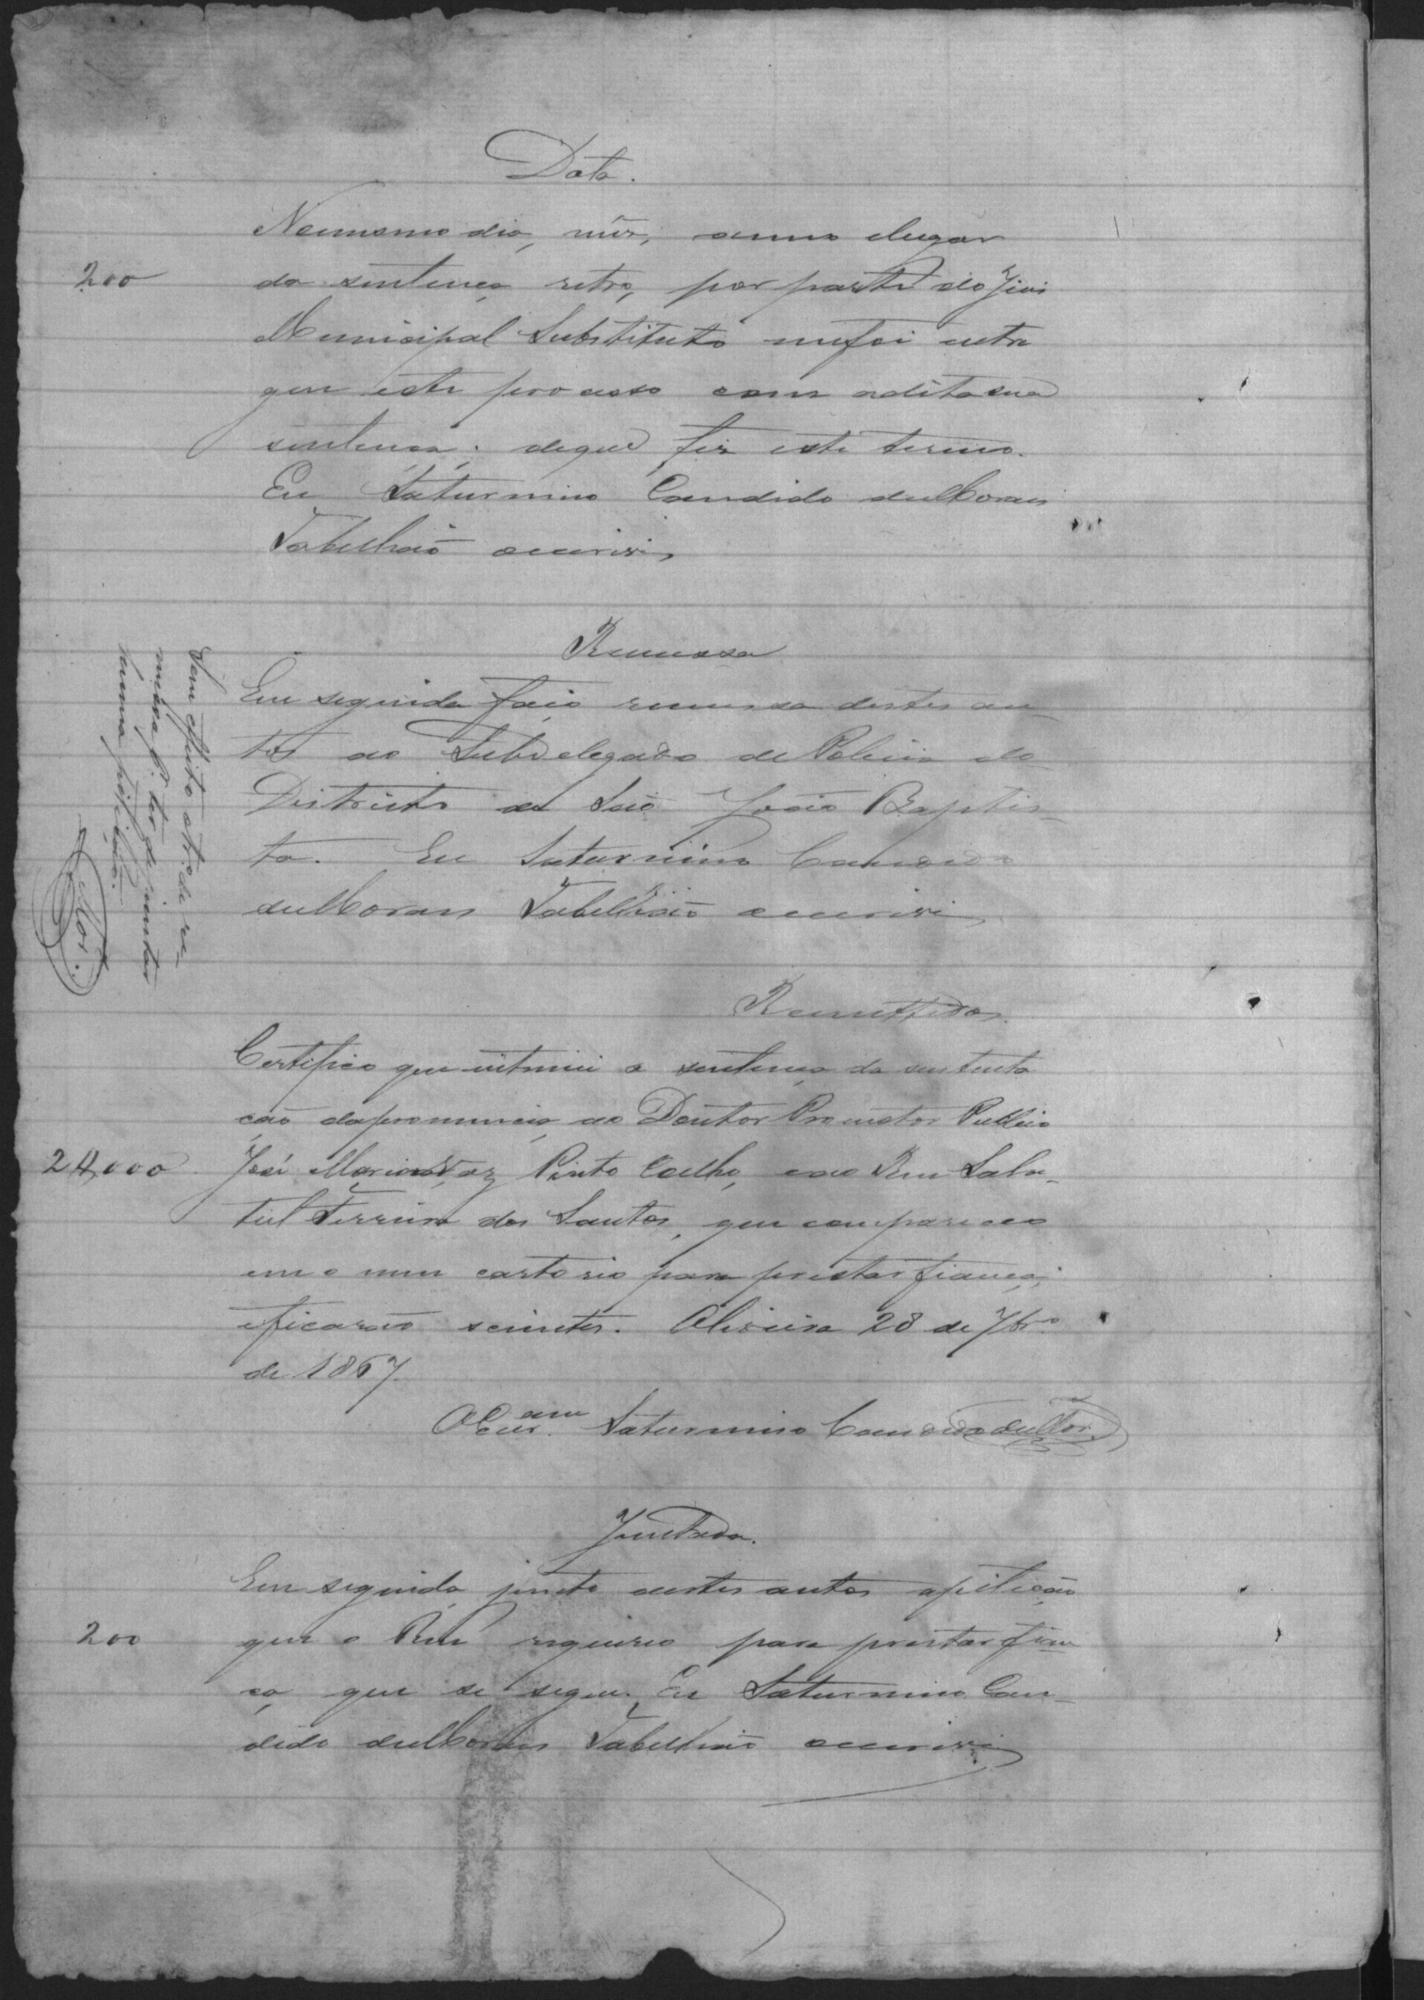 Data.
No mesmo dia, mês, anno elugar
200
da sentença retro, por parte do Juis
Municipal Substituto me foi entre
gue este processo com adita sua
sentença; deque fiz este termo.
Eu Saturnino Candido de Moraes
Tabelhião oescrivi
Remessa
Em seguida faço remessa destes au-
tos ao Subdelegado de Policia do
Districto de São João Baptis-
ta. Eu Saturnino Candido
de Moraes Tabellião oescrivi
Sem effeito o tr.º de re-
messa p.r ter de juntar
huma petição.
Mor.
Remettidos.
Certifico que intimei a sentença da sustenta
ção dapronuncia ao Doutor Promotor Publico
24,000
José Maria Vaz Pinto Coelho, eao Reu Sala-
tiel Ferreira dos Santos, que compareceo
em o meu cartorio para prestar fiança;
eficarão scientes. Oliveira 28 de 7br.º
de 1867.
O Escr.am Saturnino Candido de Mor.
Juntada.
Em seguida junto aestes autos apetição
200
que o Reu requereo para prestar fian-
ça, que se segue. Eu Saturnino Can-
dido de Moraes Tabelhião oescrivi